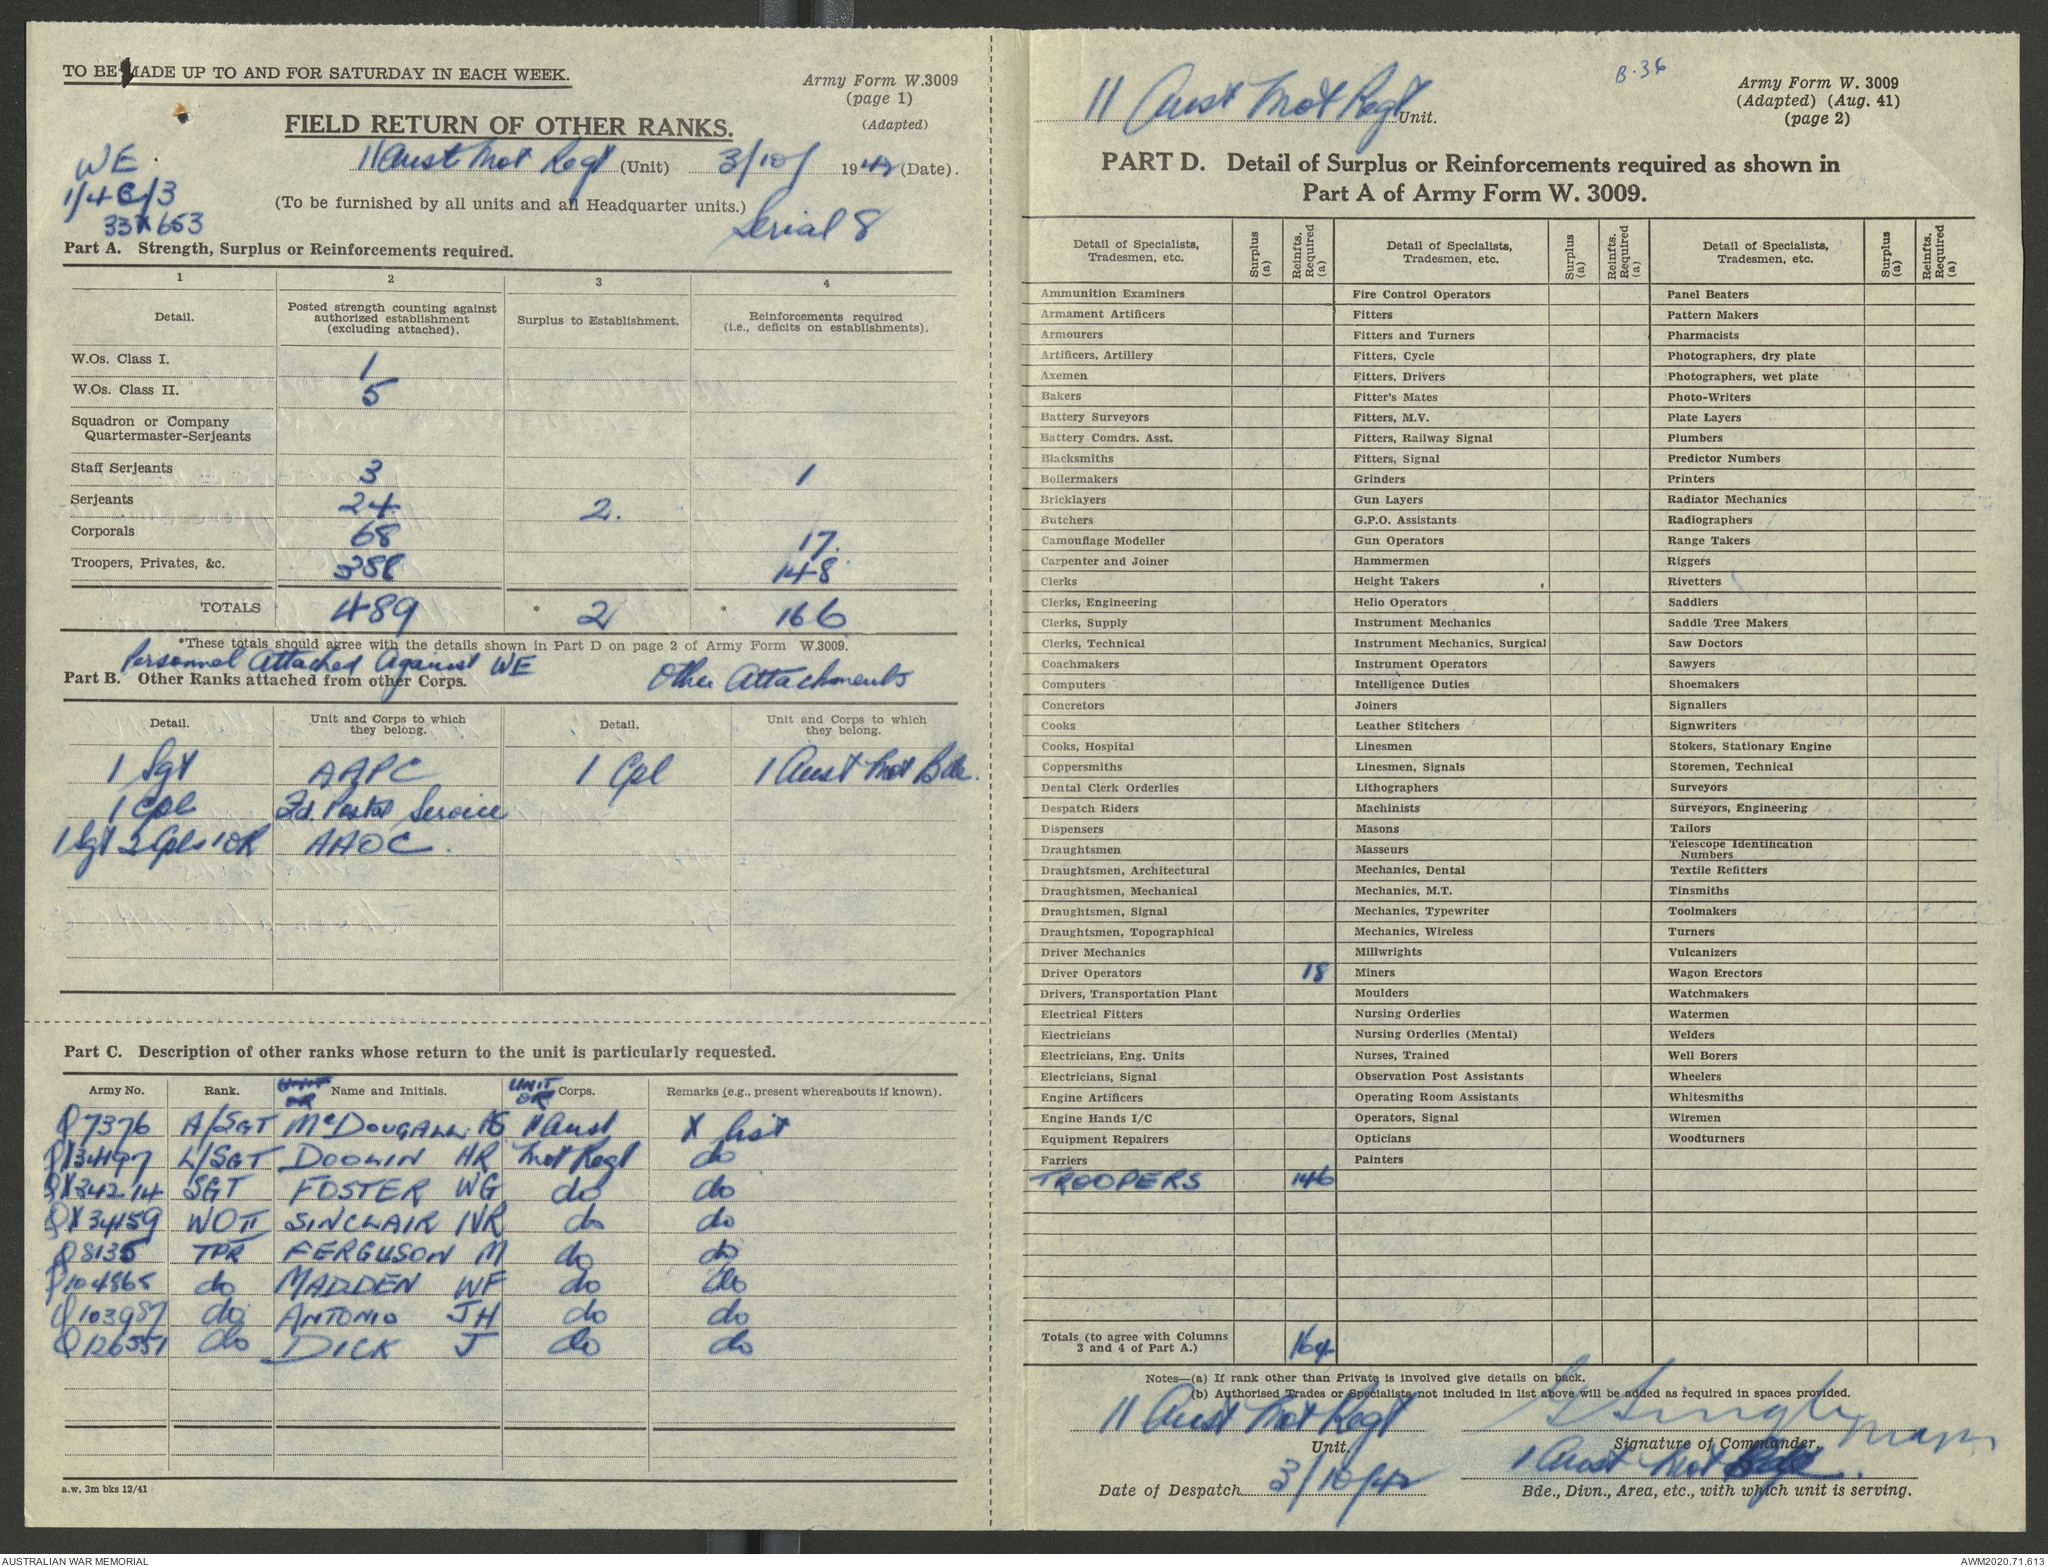 TO BE MADE UP TO AND FOR SATURDAY IN EACH WEEK.
Army Form W.3009
(page 1)
(Adapted)
FIELD RETURN OF OTHER RANKS.
11 Aust Mot Regt (Unit) 3/10/ 1942 (Date).
WE
1/4C/3
33X653
(To be furnished by all units and all Headquarter units.)
Serial 8
Part A. Strength, Surplus or Reinforcements required.
1 2 3 4
Detail. Posted strength counting against authorized establishment (excluding attached). Surplus to Establishment. Reinforcements required (i.e., deficits on establishments).
W.Os. Class I. 1
W.Os. Class II. 5
Squadron or Company
Quartermaster-Serjeants
Staff Serjeants 3 1
Serjeants 24 2.
Corporals 68 17.
Troopers, Privates, &c. 388 148
TOTALS 489 * 2 * 166
*These totals should agree with the details shown in Part D on page 2 of Army Form W.3009.
Personnel Attached Against WE Other Attachments
Part B. Other Ranks attached from other Corps.
Detail. Unit and Corps to which they belong. Detail. Unit and Corps to which they belong.
1 Sgt AAPC 1 Cpl 1 Aust Mot Bde.
1 Cpl Fd. Postal Service
1 Sgt 2 Cpls 1 OR AAOC.
Part C. Description of other ranks whose return to the unit is particularly requested.
Army No. Rank. Name and Initials. UNIT OR Corps. Remarks (e.g., present whereabouts if known).
Q7376 A/SGT McDOUGALL AS 11 Aust X list
QX34197 L/SGT DOOLIN HR Mot Regt do
QX34214 SGT FOSTER WG do do
QX34159 WOII SINCLAIR NR do do
Q8135 TPR FERGUSON M do do
Q104865 do MADDEN WF do do
Q103987 do ANTONIO JH do do
Q126551 do DICK J do do
a.w. 3m bks 12/41
B.36
11 Aust Mot Regt Unit.
Army Form W. 3009
(Adapted) (Aug. 41)
(page 2)
PART D. Detail of Surplus or Reinforcements required as shown in
Part A of Army Form W. 3009.
Detail of Specialists, Tradesmen, etc. Surplus (a) Reinfts. Required (a) Detail of Specialists, Tradesmen, etc. Surplus (a) Reinfts. Required (a) Detail of Specialists, Tradesmen, etc. Surplus (a) Reinfts. Required (a)
Ammunition Examiners Fire Control Operators Panel Beaters
Armament Artificers Fitters Pattern Makers
Armourers Fitters and Turners Pharmacists
Artificers, Artillery Fitters, Cycle Photographers, dry plate
Axemen Fitters, Drivers Photographers, wet plate
Bakers Fitter's Mates Photo-Writers
Battery Surveyors Fitters, M.V. Plate Layers
Battery Comdrs. Asst. Fitters, Railway Signal Plumbers
Blacksmiths Fitters, Signal Predictor Numbers
Boilermakers Grinders Printers
Bricklayers Gun Layers Radiator Mechanics
Butchers G.P.O. Assistants Radiographers
Camouflage Modeller Gun Operators Range Takers
Carpenter and Joiner Hammermen Riggers
Clerks Height Takers Rivetters
Clerks, Engineering Helio Operators Saddlers
Clerks, Supply Instrument Mechanics Saddle Tree Makers
Clerks, Technical Instrument Mechanics, Surgical Saw Doctors
Coachmakers Instrument Operators Sawyers
Computers Intelligence Duties Shoemakers
Concretors Joiners Signallers
Cooks Leather Stitchers Signwriters
Cooks, Hospital Linesmen Stokers, Stationary Engine
Coppersmiths Linesmen, Signals Storemen, Technical
Dental Clerk Orderlies Lithographers Surveyors
Despatch Riders Machinists Surveyors, Engineering
Dispensers Masons Tailors
Draughtsmen Masseurs Telescope Identification Numbers
Draughtsmen, Architectural Mechanics, Dental Textile Refitters
Draughtsmen, Mechanical Mechanics, M.T. Tinsmiths
Draughtsmen, Signal Mechanics, Typewriter Toolmakers
Draughtsmen, Topographical Mechanics, Wireless Turners
Driver Mechanics Millwrights Vulcanizers
Driver Operators 18 Miners Wagon Erectors
Drivers, Transportation Plant Moulders Watchmakers
Electrical Fitters Nursing Orderlies Watermen
Electricians Nursing Orderlies (Mental) Welders
Electricians, Eng. Units Nurses, Trained Well Borers
Electricians, Signal Observation Post Assistants Wheelers
Engine Artificers Operating Room Assistants Whitesmiths
Engine Hands I/C Operators, Signal Wiremen
Equipment Repairers Opticians Woodturners
Farriers Painters
TROOPERS 146
Totals (to agree with Columns 3 and 4 of Part A.) 164
Notes—(a) If rank other than Private is involved give details on back.
(b) Authorised Trades or Specialists not included in list above will be added as required in spaces provided.
11 Aust Mot Regt
Unit. Signature of Commander.
1 Aust Mot Bde.
Date of Despatch 3/10/42
Bde., Divn., Area, etc., with which unit is serving.
AUSTRALIAN WAR MEMORIAL
AWM2020.71.613